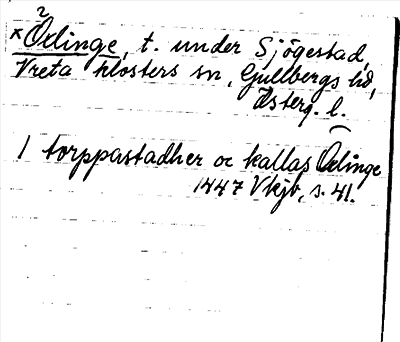 ×Ödlinge, t. under Sjögestad,
Vreta klosters sn, Gullbergs hd,
Österg. l.
1 torppastadher oc kallas Ödlinge
1447 Vkjb, s. 41.